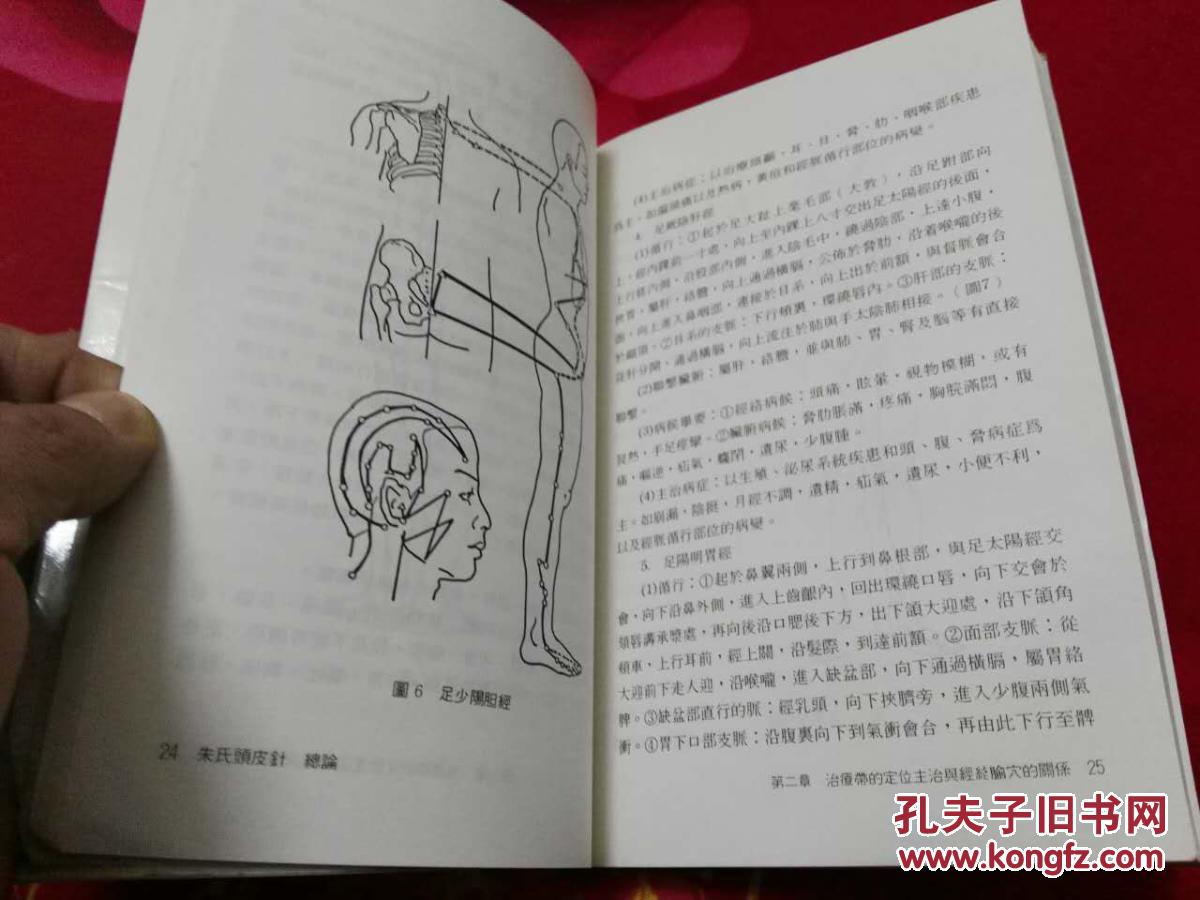 圖6 足少陽胆經
24 朱氏頭皮針 總論
(4)主治病症：以治療頭顳、耳、目、脅、肋、咽喉部疾患
爲主，如偏頭痛以及熱病，黃疸和經脈循行部位的病變。
4. 足厥陰肝經
(1)循行：①起於足大趾上叢毛部（大敦），沿足跗部向
上，經內踝前一寸處，向上至內踝上八寸交出足太陽經的後面，
上行膝內側，沿股部內側，進入陰毛中，繞過陰部，上達小腹，
挾胃，屬肝，絡膽，向上通過橫膈，公佈於脅肋，沿着喉嚨的後
面，向上進入鼻咽部，連接於目系，向上出於前額，與督脈會合
於巔頂。②目系的支脈：下行頰裏，環繞唇內。③肝部的支脈：
從肝分開，通過橫膈，向上流注於肺與手太陰肺相接。（圖7）
(2)聯繫臟腑：屬肝，絡膽，並與肺、胃、腎及脳等有直接
聯繫。
(3)病候舉要：①經絡病候：頭痛，眩暈，視物模糊，或有
發熱，手足痙攣。②臟腑病候：脅肋脹滿，疼痛，胸脘滿悶，腹
痛，嘔逆，疝氣，癃閉，遺尿，少腹腫。
(4)主治病症：以生殖、泌尿系統疾患和頭、腹、脅病症爲
主。如崩漏，陰挺，月經不調，遺精，疝氣，遺尿，小便不利，
以及經脈循行部位的病變。
5. 足陽明胃經
(1)循行：①起於鼻翼兩側，上行到鼻根部，與足太陽經交
會，向下沿鼻外側，進入上齒齦內，回出環繞口唇，向下交會於
頦唇溝承漿處，再向後沿口腮後下方，出下頜大迎處，沿下頜角
頰車，上行耳前，經上關，沿髮際，到達前額。②面部支脈：從
大迎前下走人迎，沿喉嚨，進入缺盆部，向下通過橫膈，屬胃絡
脾。③缺盆部直行的脈：經乳頭，向下挾臍旁，進入少腹兩側氣
衝。④胃下口部支脈：沿腹裏向下到氣衝會合，再由此下行至髀
第二章 治療帶的定位主治與經絡腧穴的關係 25
孔夫子旧书网
www.kongfz.com